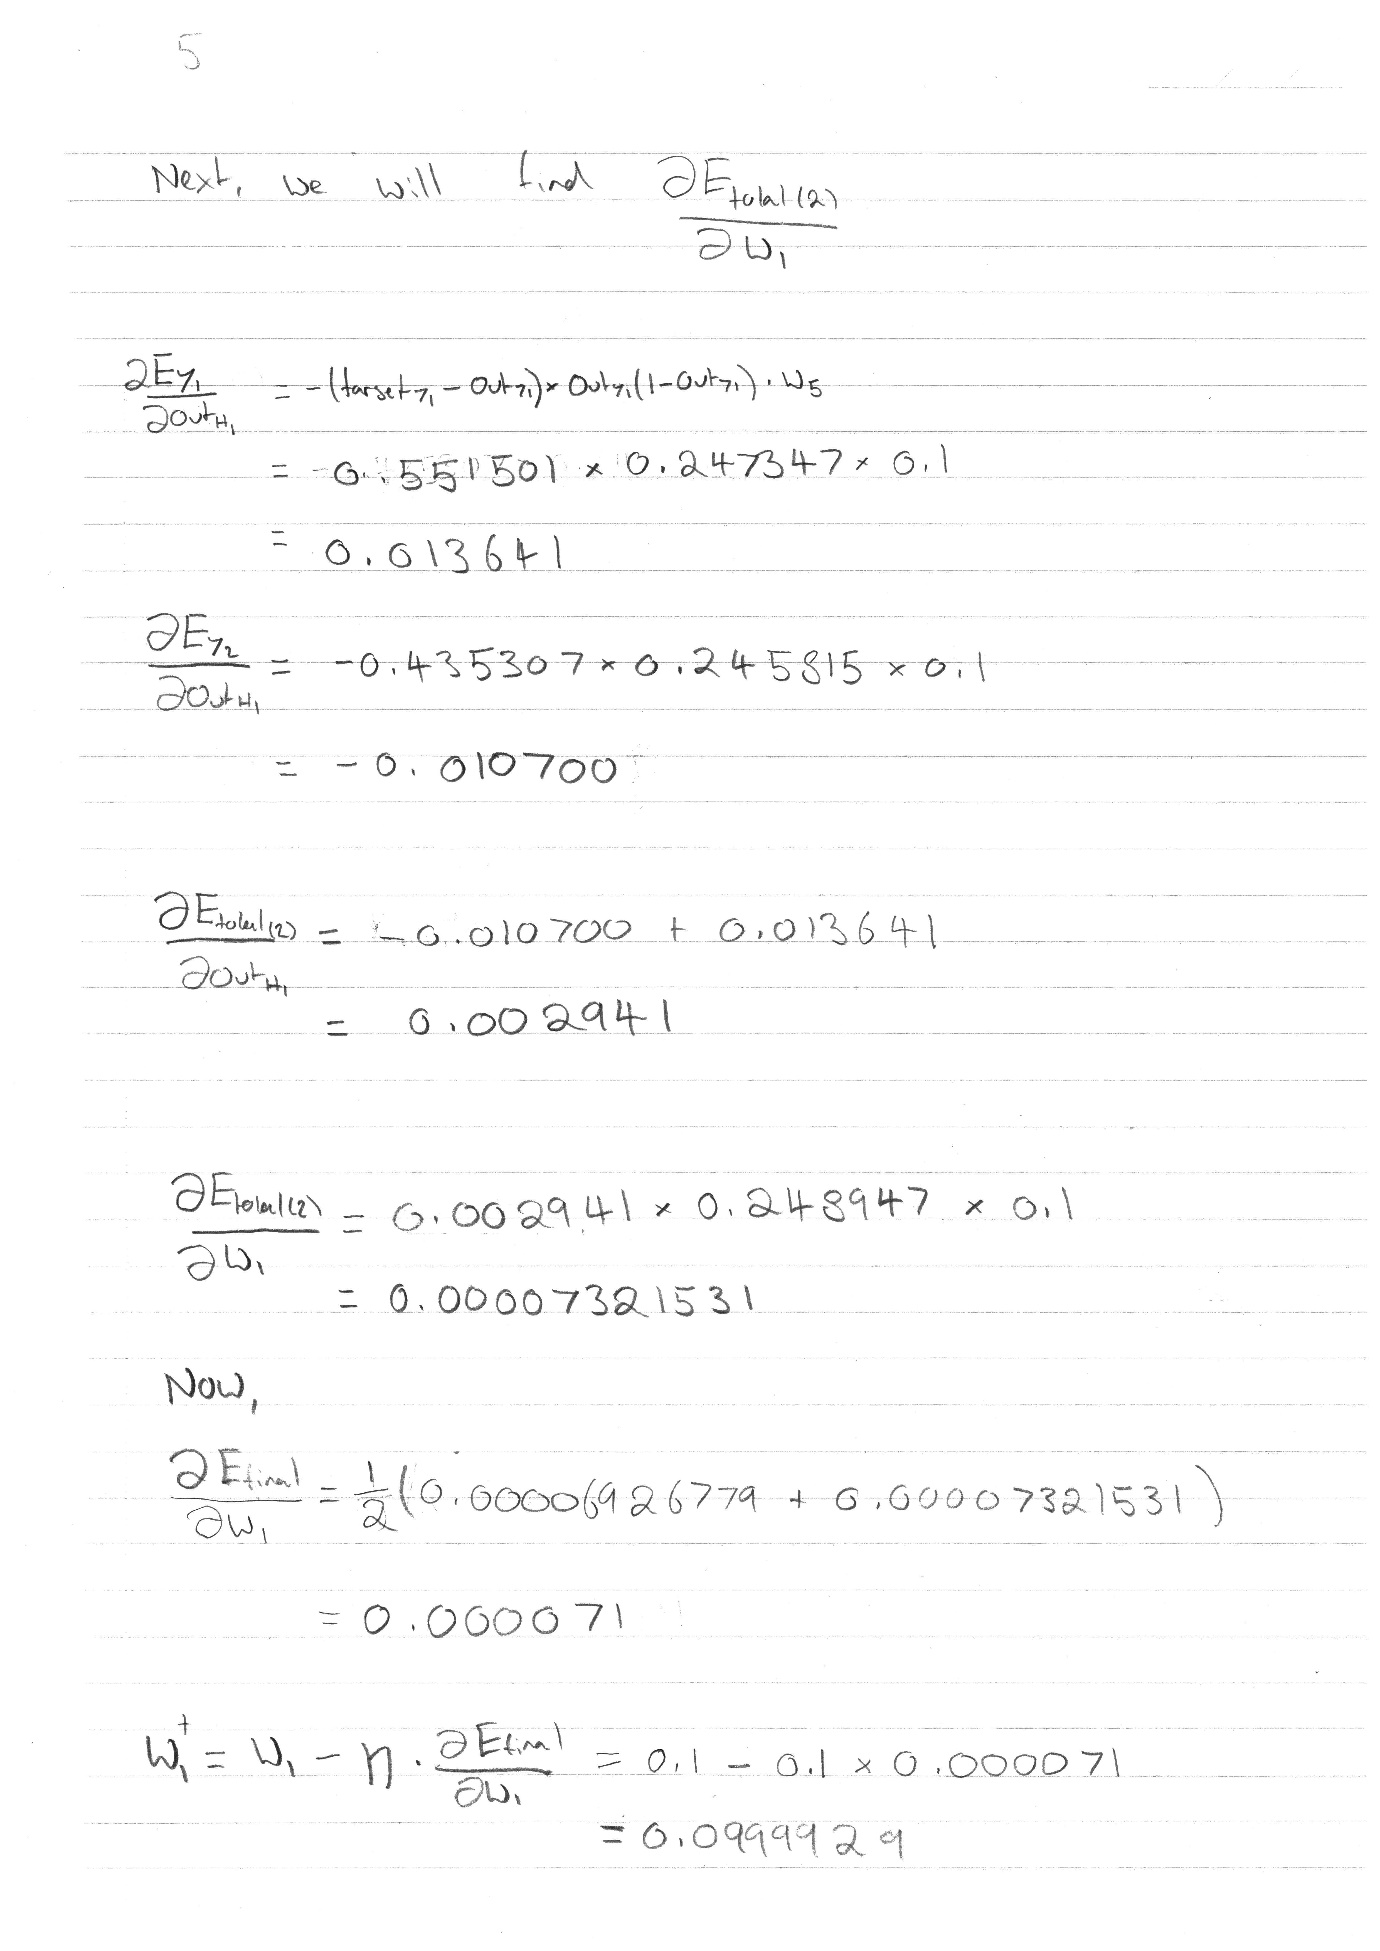 5
Next, we will find ∂E_total(2)/∂w₁
∂E_y₁/∂out_H₁ = -(target_y₁ - out_y₁) × out_y₁(1-out_y₁) · w₅
= 0.551501 × 0.247347 × 0.1
= 0.013641
∂E_y₂/∂out_H₁ = -0.435307 × 0.245815 × 0.1
= -0.010700
∂E_total(2)/∂out_H₁ = -0.010700 + 0.013641
= 0.002941
∂E_total(2)/∂w₁ = 0.002941 × 0.248947 × 0.1
= 0.00007321531
Now,
∂E_final/∂w₁ = 1/2 (0.00006926779 + 0.00007321531)
= 0.000071
w₁⁺ = w₁ - η · ∂E_final/∂w₁ = 0.1 - 0.1 × 0.000071
= 0.0999929